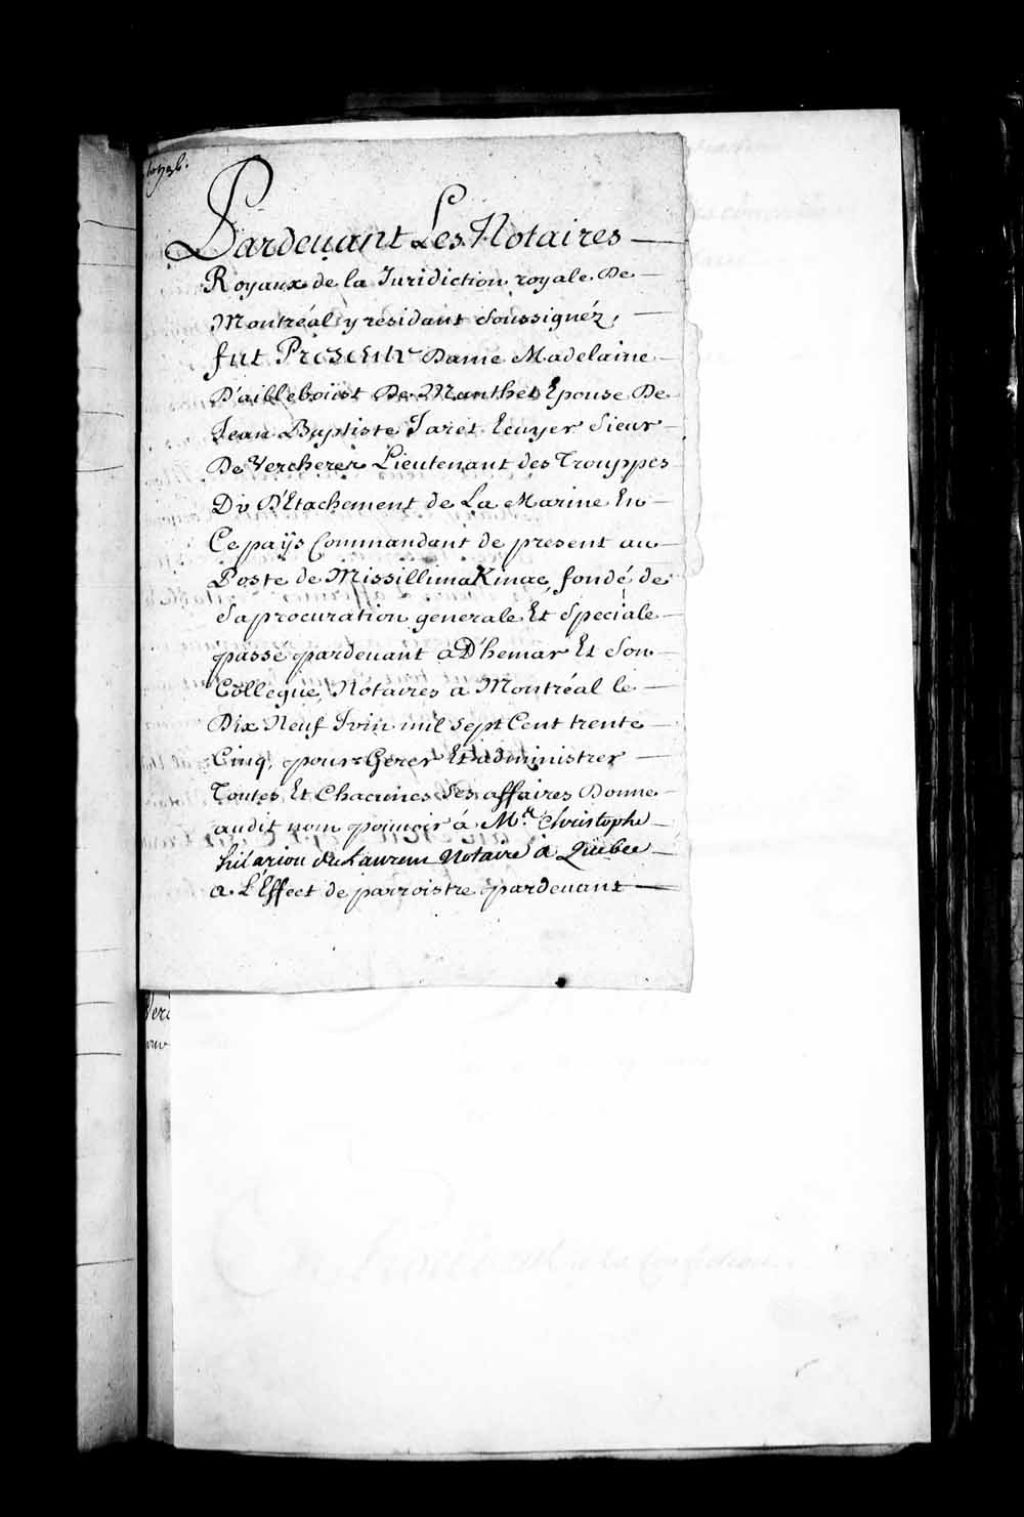 Pardeuant Les Notaires
Royaux de la Juridiction royale De
Montréal y résidant Soussignéz,
fut Presente Dame Madelaine
D'ailleboüst De Manthet Epouse De
Jean Baptiste Jaret Ecuyer Sieur
De Vercheres Lieutenant des Trouppes
Du D'Etachement de La Marine En
Ce païs Commandant de present au
Poste de Missillimakinac, fondé de
Sa procuration generale Et Speciale
passé pardeuant aD'hemar Et Son
Collegue Notaires a Montréal le
Dix Neuf Juin mil Sept Cent trente
Cinq, pour Gerer Et administrer
Toutes Et Chacunes Ses affaires Donne
audit nom pouuoir á Mre Christophe
hilarion du Laurent Notaire a Québec
a L'Effect de parroistre pardeuant
Verc